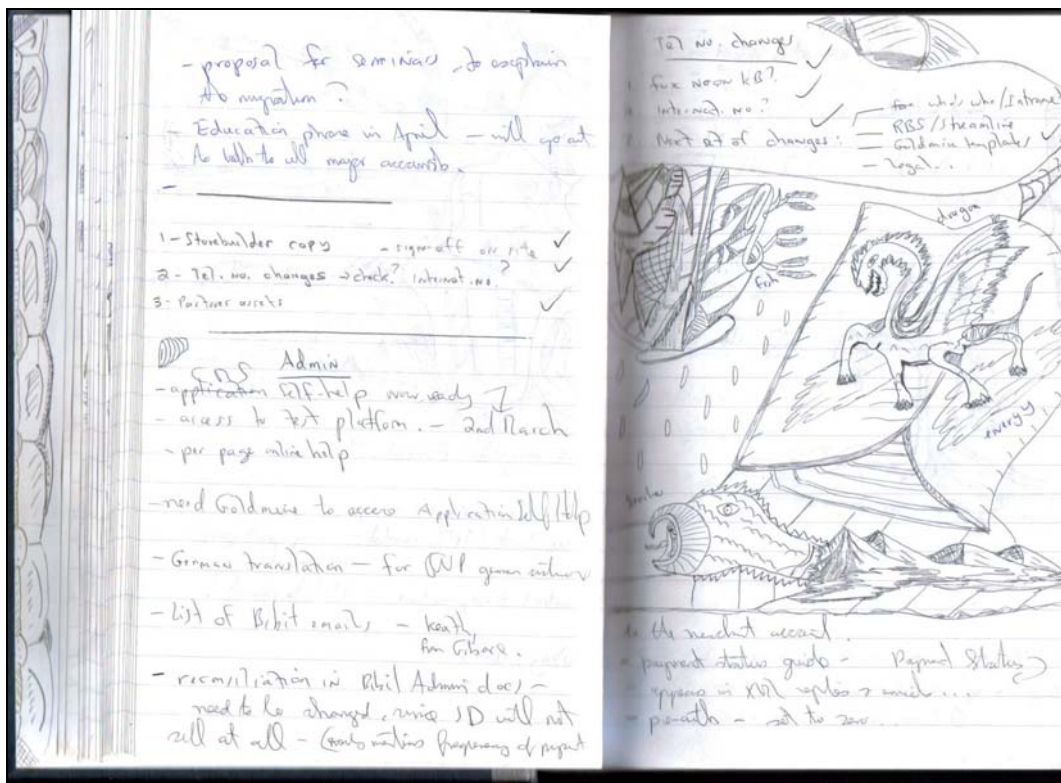 - proposal for seminars, to explain
to migration?
- Education phase in April - will go out
to all major accounts.
-
1 - Storebuilder copy - sign-off on site ✓
2 - Tel. no. changes → check? internat. no. ? ✓
3 - Partner assets ✓
CMS Admin
- application self-help now ready
- access to test platform. - 2nd March
- per page online help
- need Goldmine to access Application Self Help
- German translation - for german
- List of Bibit emails - Keath,
from
- reconciliation in Bibit Admin docs -
need to be changed, since JD will not
sell at all - frequency of
Tel no. changes ✓
fax no on KB? ✓
internat. no? ✓
Next set of changes: - fax. who's who/Intranet
- RBS/Streamline
- Goldmine templates ✓
- Legal...
dragon
fish
energy
to the merchant account.
- payment status guide - Payment Status
- appears in XML replies &
- pre-auth - set to zero...